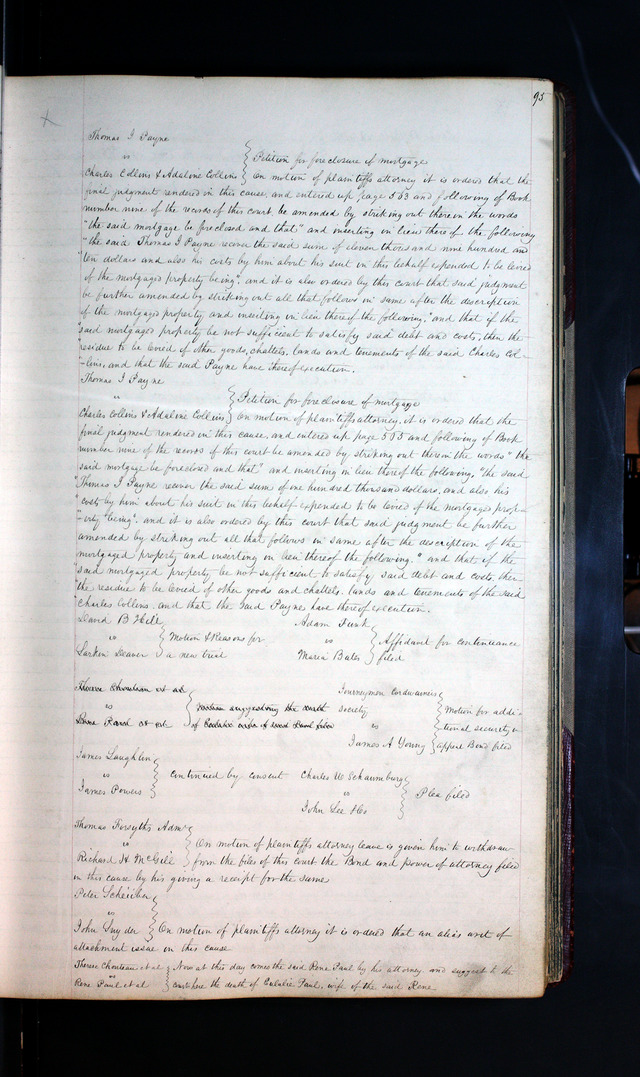 95
Thomas I Payne
vs } Petition for foreclosure of mortgage
Charles Collins & Adaline Collins } On motion of plaintiffs attorney it is ordered that the
final judgment rendered in this cause, and entered up page 563 and following of Book
number nine of the records of this court, be amended by striking out therein the words
"the said mortgage be foreclosed and that" and inserting in lieu thereof the following
"the said Thomas I Payne recover the said sum of eleven thousand nine hundred and
"ten dollars and also his costs by him about his suit in this behalf expended to be levied
"of the mortgaged property being", and it is also ordered by this court that said judgment
be further amended by striking out all that follows in same after the description
of the mortgaged property, and inserting in lieu thereof the following, "and that if the
"said mortgaged property be not sufficient to satisfy said debt and costs, then the
"residue to be levied of other goods, chattels, lands and tenements of the said Charles Col-
"-lins, and that the said Payne have thereof execution.
Thomas I Payne
vs } Petition for foreclosure of mortgage
Charles Collins & Adaline Collins } On motion of plaintiffs attorney, it is ordered that the
final judgment rendered in this cause, and entered up page 565 and following of Book
number nine of the records of this court be amended by striking out therein the words "the
said mortgage be foreclosed and that" and inserting in lieu thereof the following, "the said
"Thomas I Payne recover the said sum of one hundred thousand dollars, and also his
"costs by him about his suit in this behalf expended to be levied of the mortgaged prop-
"-erty being", and it is also ordered by this court that said judgment be further
amended by striking out all that follows in same after the description of the
mortgaged property and inserting in lieu thereof the following, "and that if the
"said mortgaged property be not sufficient to satisfy said debt and costs, then
"the residue to be levied of other goods and chattels, lands and tenements of the said
Charles Collins, and that the said Payne have thereof execution.
David B Hill
vs } Motion & Reasons for
Larkin Deaver } a new trial
Adam Funk
vs } Affidavit for continuance
Maria Bates } filed
Therese Chouteau et al
vs
Rene Paul et al
of
Journeymen Cordwainers
society } Motion for addi-
vs } tional security in
James A Young } appeal Bond filed
James Laughlin
vs } Continued by consent
James Powers
Charles W Schaumburg
vs } Plea filed
John Lee & Co
Thomas Forsyths Admr
vs } On motion of plaintiffs attorney leave is given him to withdraw
Richard H McGill } from the files of this court the Bond and power of attorney filed
in this cause by his giving a receipt for the same
Peter Scheiber
vs
John Snyder } On motion of plaintiffs attorney it is ordered that an alias writ of
attachment issue in this cause
Therese Chouteau et al } Now at this day comes the said Rene Paul by his attorney and suggest to the
vs
Rene Paul et al } court here the death of Eulalie Paul, wife of the said Rene